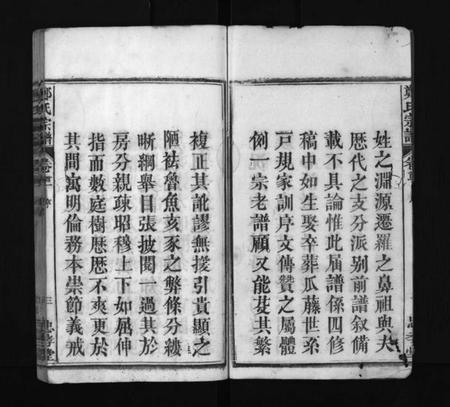 姓之淵源遷羅之鼻祖與夫
歷代之支分派别前譜叙備
載不具論惟此屆譜係四修
稿中如生娶卒葬瓜藤世系
戸規家訓序文傳贊之屬體
例一宗老譜顧又能芟其繁
鄭氏宗譜
複正其訛謬無援引貴顯之
陋祛魯魚亥豕之弊條分縷
晰綱舉目張披閱一過其於
房分親疎昭穆上下如屈伸
指而數庭樹歴歴不爽更於
其間寓明倫務本崇節義戒
鄭氏宗譜
三